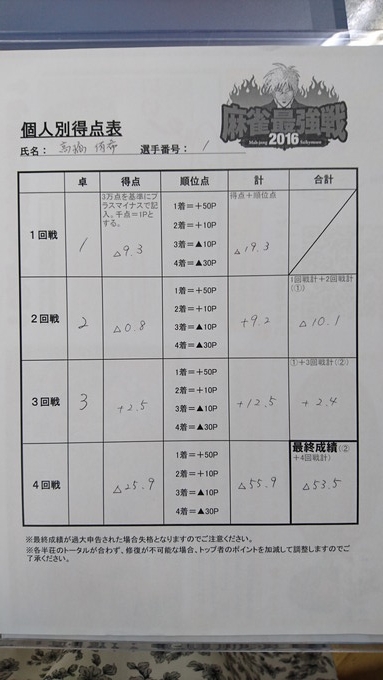 麻雀最強戦
Mah-jong 2016 Saikyosen
個人別得点表
氏名： 選手番号： 1
卓 得点 順位点 計 合計
1回戦 1
3万点を基準にプ
ラスマイナスで記
入。千点＝1Pと
する。
△9.3
1着＝＋50P
2着＝＋10P
3着＝▲10P
4着＝▲30P
得点＋順位点
△19.3
2回戦 2 △0.8
1着＝＋50P
2着＝＋10P
3着＝▲10P
4着＝▲30P
+9.2
1回戦計＋2回戦計
(①)
△10.1
3回戦 3 +2.5
1着＝＋50P
2着＝＋10P
3着＝▲10P
4着＝▲30P
+12.5
①＋3回戦計(②)
+2.4
4回戦 △25.9
1着＝＋50P
2着＝＋10P
3着＝▲10P
4着＝▲30P
△55.9
最終成績(②
＋4回戦計)
△53.5
※最終成績が過大申告された場合失格となりますのでご注意ください。
※各半荘のトータルが合わず、修復が不可能な場合、トップ者のポイントを加減して調整しますのでご
了承ください。